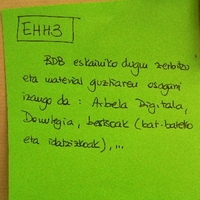 EHH3
BDB eskainiko dugun zerbitzu
eta material guztiaren osagarri
izango da: Arbela Digitala,
Doinutegia, bertsoak (bat-bateko
eta idatzizkoak), ...